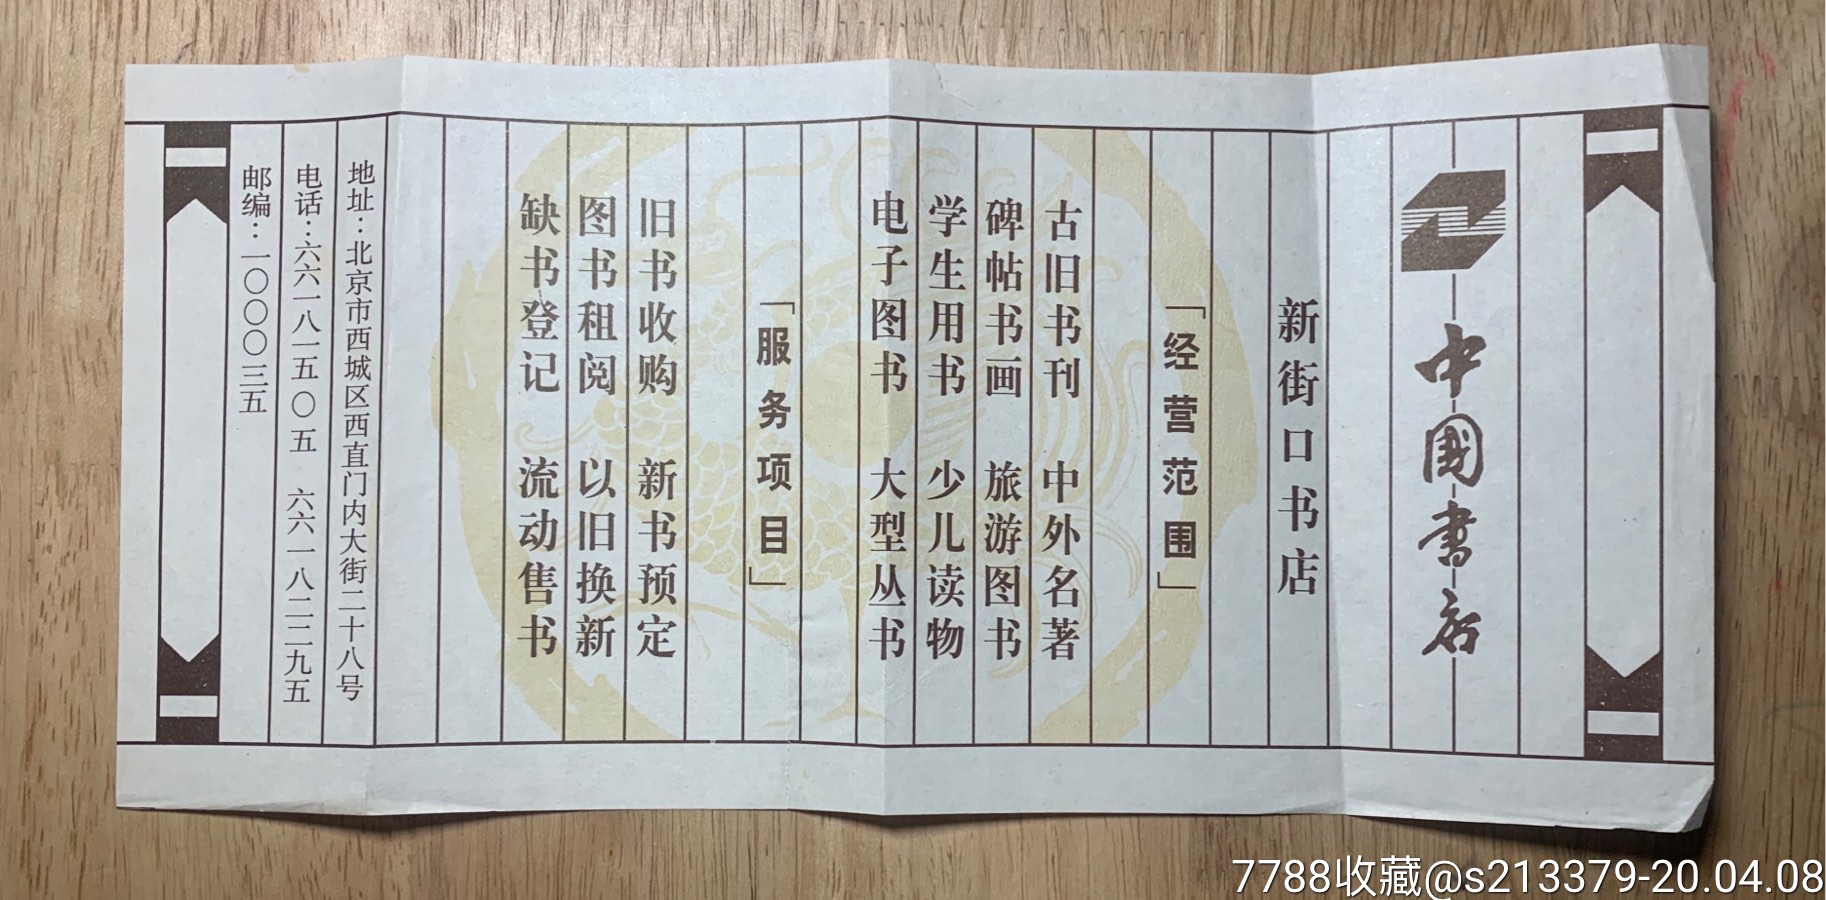 中國書店
新街口书店
「经营范围」
古旧书刊　中外名著
碑帖书画　旅游图书
学生用书　少儿读物
电子图书　大型丛书
「服务项目」
旧书收购　新书预定
图书租阅　以旧换新
缺书登记　流动售书
地址：北京市西城区西直门内大街二十八号
电话：六六一八一五〇五　六六一八二二九五
邮编：一〇〇〇三五
7788收藏@s213379-20.04.08